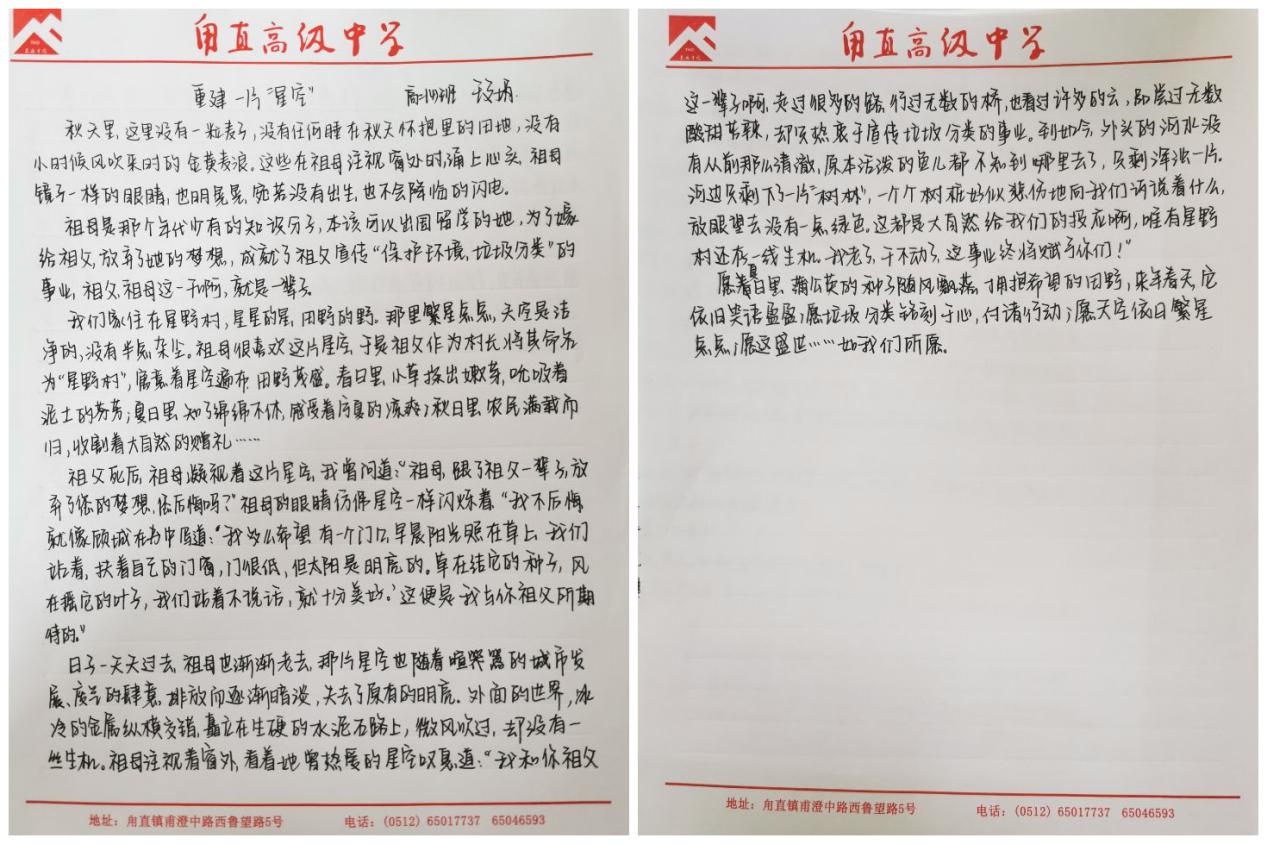 甪直高级中学
重建一片“星空”
秋天里,这里没有一粒麦子,没有任何睡在秋天怀抱里的田地,没有
小时候风吹来时的金黄麦浪。这些在祖母注视窗外时,涌上心头,祖母
镜子一样的眼睛,也明晃晃,宛若没有出生,也不会降临的闪电。
祖母是那个年代少有的知识分子,本该可以出国留学的她,为了嫁
给祖父,放弃了她的梦想,成就了祖父宣传“保护环境,垃圾分类”的
事业,祖父祖母这一干啊,就是一辈子。
我们家住在星野村,星星的星,田野的野。那里繁星点点,天空是洁
净的,没有半点杂尘。祖母很喜欢这片星空,于是祖父作为村长将其命名
为“星野村”,寓意着星空遍布,田野茂盛。春日里,小草探出嫩芽,吮吸着
泥土的芬芳;夏日里,知了绵绵不休,感受着仲夏的凉爽;秋日里,农民满载而
归,收割着大自然的赠礼……
祖父死后,祖母凝视着这片星空,我曾问道:“祖母,跟了祖父一辈子,放
弃了您的梦想,您后悔吗?”祖母的眼睛仿佛星空一样闪烁着“我不后悔,
就像顾城在书中写道:‘我多么希望,有一个门口,早晨,阳光照在草上,我们
站着,扶着自己的门窗,门很低,但太阳是明亮的。草在结它的种子,风
在摇它的叶子,我们站着不说话,就十分美好。’这便是我与你祖父所期
待的。”
日子一天天过去,祖母也渐渐老去,那片星空也随着喧哭嚣的城市发
展、废气的肆意排放而逐渐暗淡,失去了原有的明亮。外面的世界,冰
冷的金属纵横交错,矗立在生硬的水泥石路上,微风吹过,却没有一
丝生机。祖母注视着窗外,看着她曾热爱的星空叹息道:“我和你祖父
地址:甪直镇甫澄中路西鲁望路5号 电话:(0512) 65017737 65046593
甪直高级中学
这一辈子啊,走过很多的路,行过无数的桥,也看过许多的云,即尝过无数
酸甜苦辣,却只热衷于宣传垃圾分类的事业。到如今,外头的河水没
有从前那么清澈,原本活泼的鱼儿都不知到哪里去了,只剩浑浊一片。
河边只剩下了一片“树林”,一个个树桩好似悲伤地向我们诉说着什么,
放眼望去没有一点绿色。这都是大自然给我们的报应啊,唯有星野
村还存一线生机。我老了,干不动了,这事业终将赋予你们!”
愿春日里,蒲公英的种子随风飘荡,拥抱希望的田野,来年春天,它
依旧笑语盈盈;愿垃圾分类铭刻于心,付诸行动;愿天空依旧繁星
点点;愿这盛世……如我们所愿。
地址:甪直镇甫澄中路西鲁望路5号 电话:(0512) 65017737 65046593